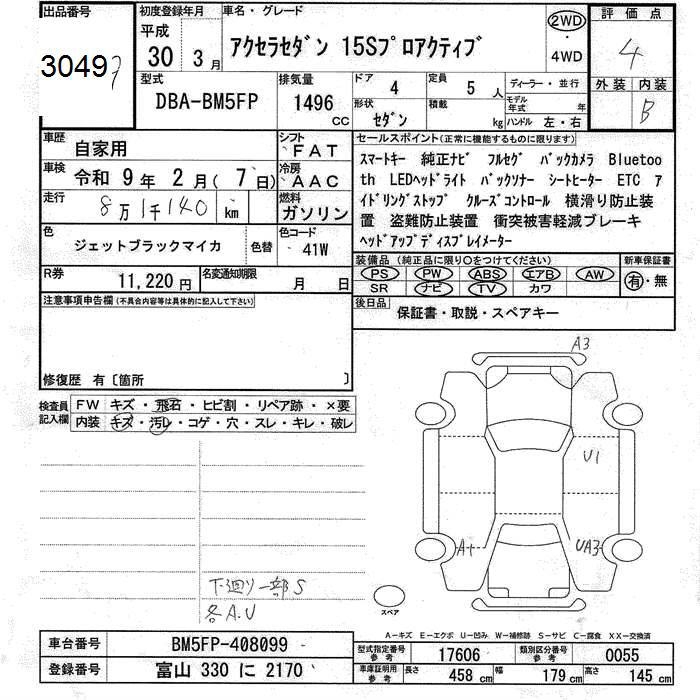 出品番号
30497
初度登録年月
平成
30 3月
車名・グレード
アクセラセダン 15Sプロアクティブ
2WD
・
4WD
評価点
4
外装 内装
B
型式
DBA-BM5FP
排気量
1496 CC
ドア 4
形状 セダン
定員 5 人
積載 kg
ディーラー・並行
モデル年式 年
ハンドル 左・右
車歴 自家用
シフト FAT
車検 令和 9年 2月( 7日)
冷房 AAC
走行 8万1千140 km
燃料 ガソリン
色 ジェットブラックマイカ 色替
色コード 41W
R券 11,220円
名変通知期限 月 日
セールスポイント(正常に機能するものに限ります)
スマートキー 純正ナビ フルセグ バックカメラ Bluetoo
th LEDヘッドライト バックソナー シートヒーター ETC ア
イドリングストップ クルーズコントロール 横滑り防止装
置 盗難防止装置 衝突被害軽減ブレーキ
ヘッドアップディスプレイメーター
装備品(純正品に限り〇をつけてください)
PS PW ABS エアB AW
SR ナビ TV カワ
新車保証書
有・無
後日品 保証書・取説・スペアキー
注意事項申告欄(不具合内容等は具体的に記入して下さい)
修復歴 有〔箇所 〕
検査員記入欄
FW キズ・飛石・ヒビ割・リペア跡・×要
内装 キズ・汚レ・コゲ・穴・スレ・キレ・破レ
A3
U1
A+
UA3
下廻り一部S
各A.U
スペア
A-キズ E-エクボ U-凹み W-補修跡 S-サビ C-腐食 XX-交換済
車台番号 BM5FP-408099
登録番号 富山 330 に 2170
型式指定番号 参考 17606
類別区分番号 参考 0055
車庫証明用 参考 長さ 458 cm 幅 179 cm 高さ 145 cm